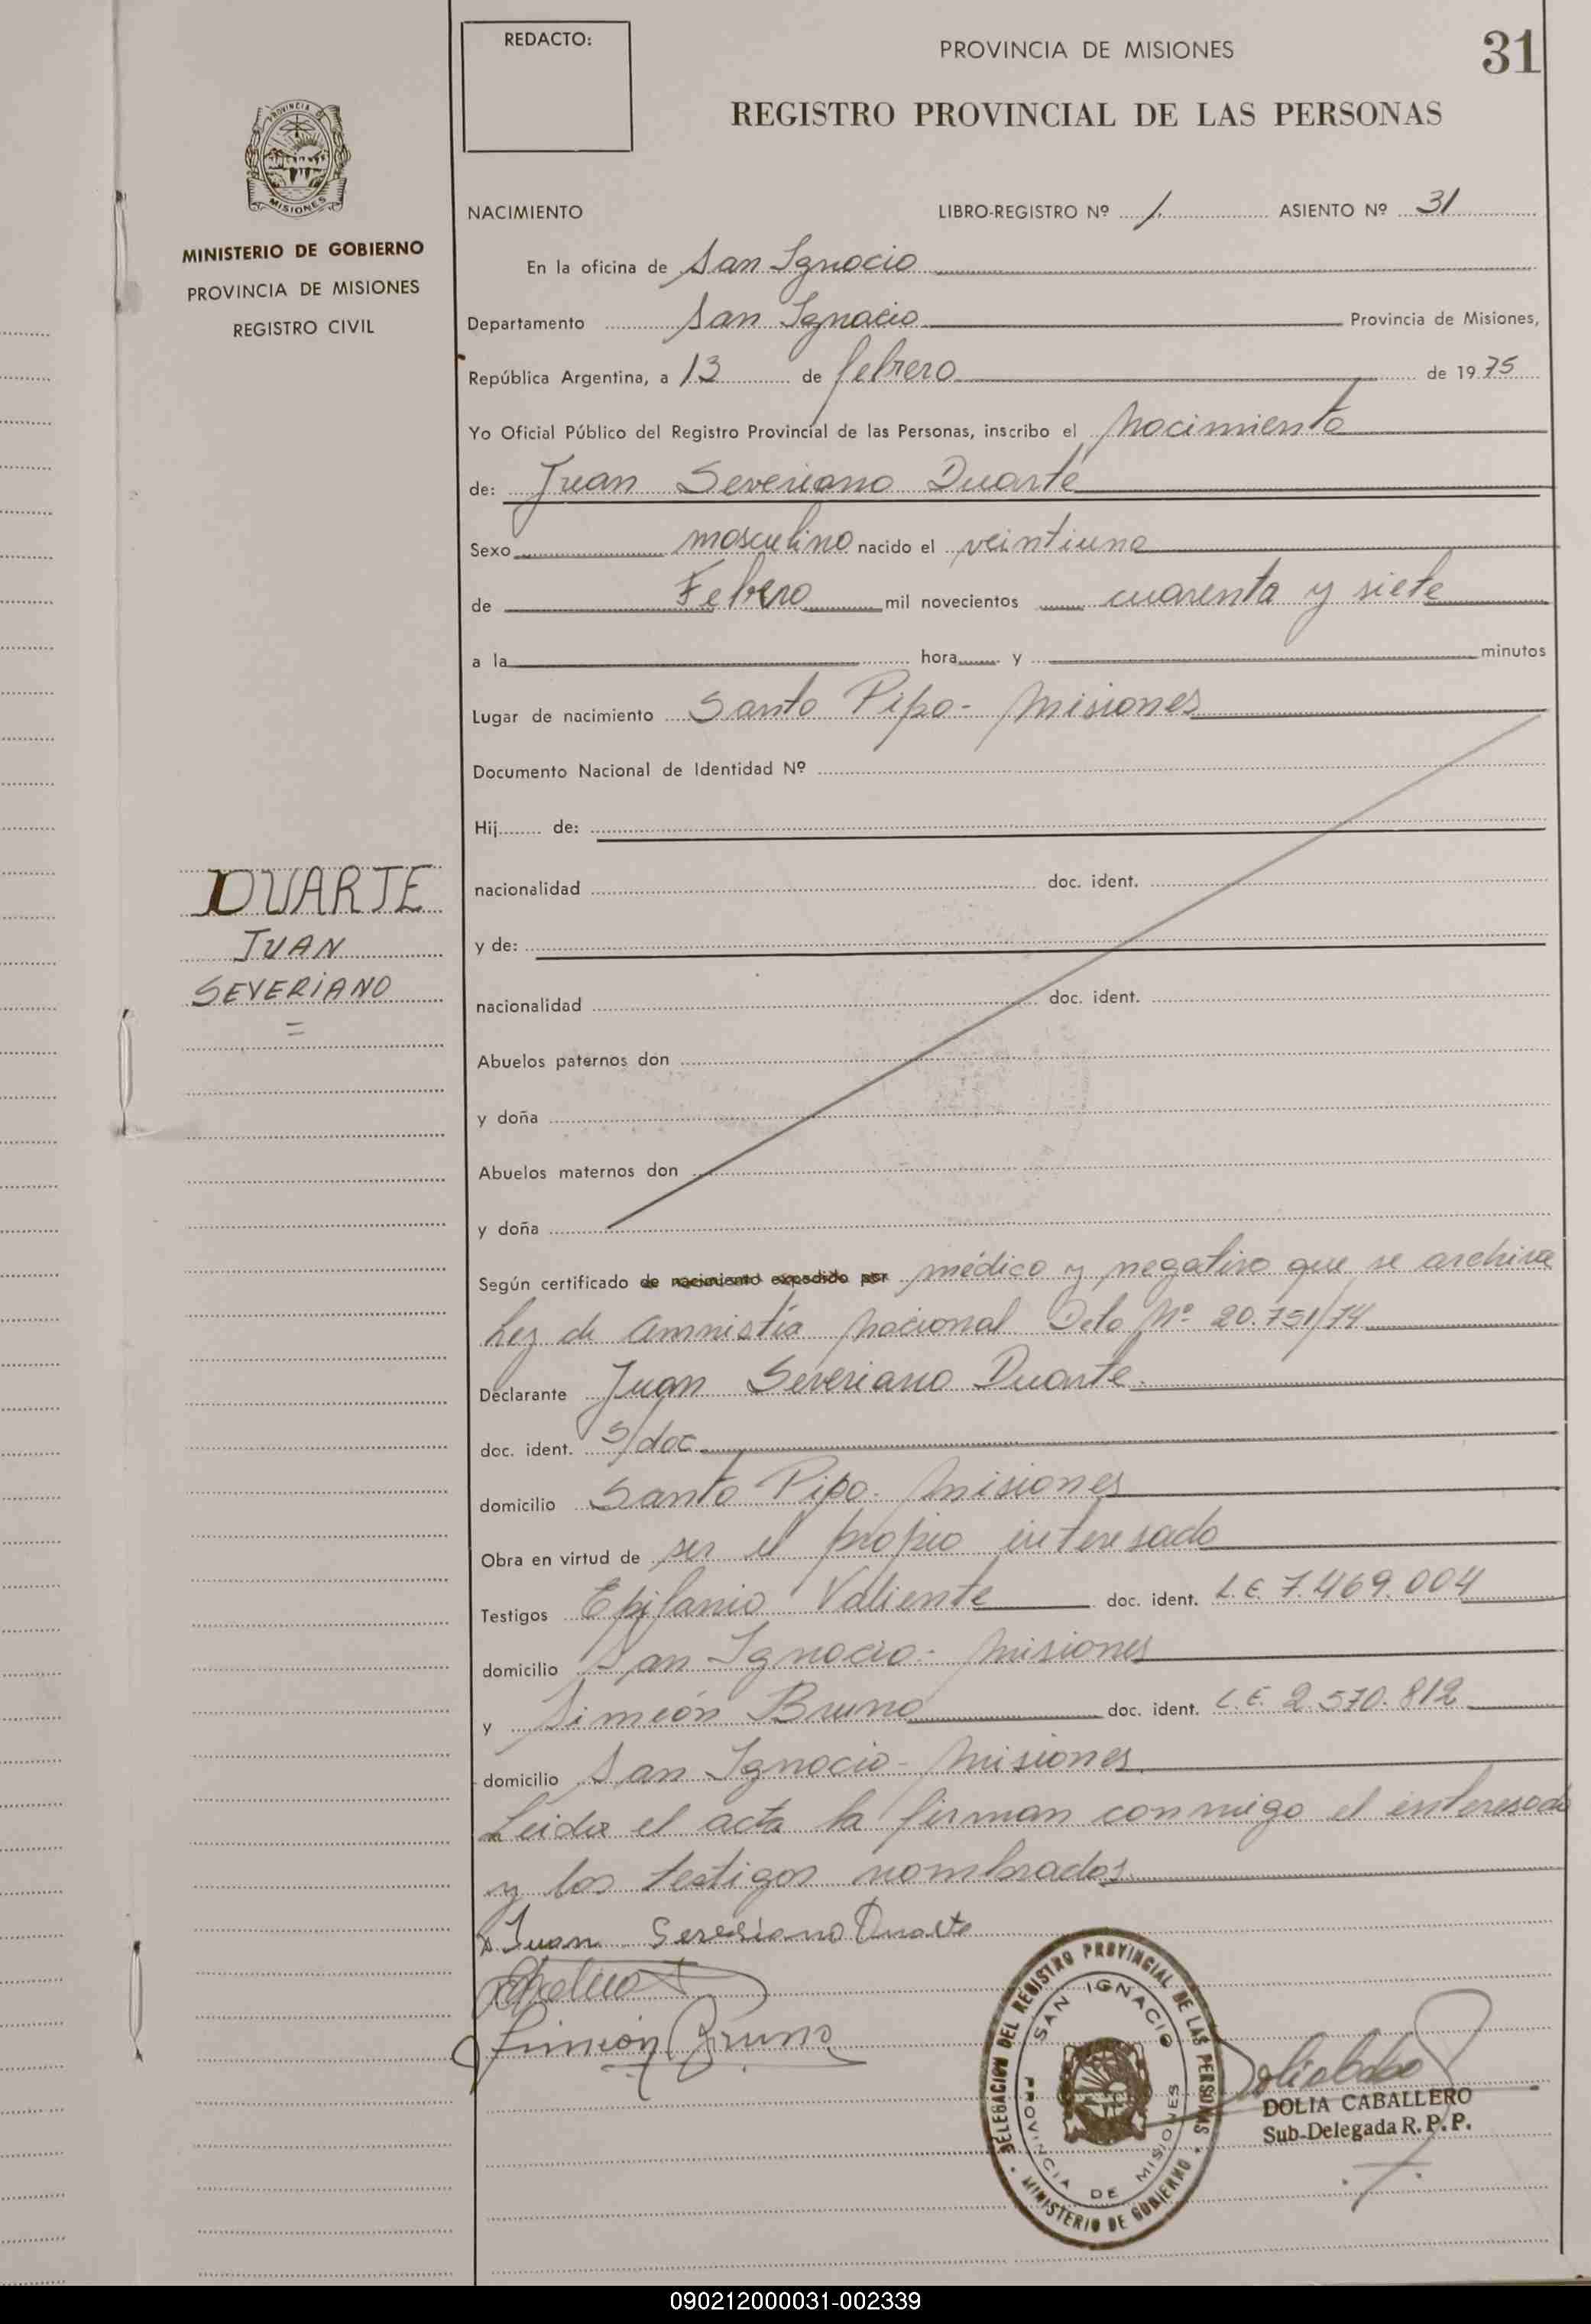 REDACTO:
PROVINCIA DE MISIONES
31
REGISTRO PROVINCIAL DE LAS PERSONAS
PROVINCIA DE
MISIONES
MINISTERIO DE GOBIERNO
PROVINCIA DE MISIONES
REGISTRO CIVIL
NACIMIENTO LIBRO-REGISTRO Nº 1 ASIENTO Nº 31
En la oficina de San Ignacio
Departamento San Ignacio Provincia de Misiones,
República Argentina, a 13 de febrero de 1975
Yo Oficial Público del Registro Provincial de las Personas, inscribo el nacimiento
de: Juan Severiano Duarte
Sexo masculino nacido el veintiuno
de Febrero mil novecientos cuarenta y siete
a la hora y minutos
Lugar de nacimiento Santo Pipo - Misiones
Documento Nacional de Identidad Nº
Hij de:
nacionalidad doc. ident.
y de:
nacionalidad doc. ident.
Abuelos paternos don
y doña
Abuelos maternos don
y doña
DUARTE
JUAN
SEVERIANO
=
Según certificado de nacimiento expedido por médico y negativo que se archiva
Ley de Amnistía Nacional Dto Nº 20.751/74
Declarante Juan Severiano Duarte.
doc. ident. s/doc
domicilio Santo Pipo. Misiones
Obra en virtud de ser el propio interesado
Testigos Epifanio Valiente doc. ident. L.E. 7.469.004
domicilio San Ignacio - Misiones
y Simeón Bruno doc. ident. L.E. 2.570.812
domicilio San Ignacio - Misiones
Leida el acta la firman conmigo el interesado
y los testigos nombrados.
Juan Severiano Duarte
Simeón Bruno
DELEGACION DEL REGISTRO PROVINCIAL DE LAS PERSONAS
SAN IGNACIO
PROVINCIA DE MISIONES
MINISTERIO DE GOBIERNO
DOLIA CABALLERO
Sub-Delegada R. P. P.
090212000031-002339